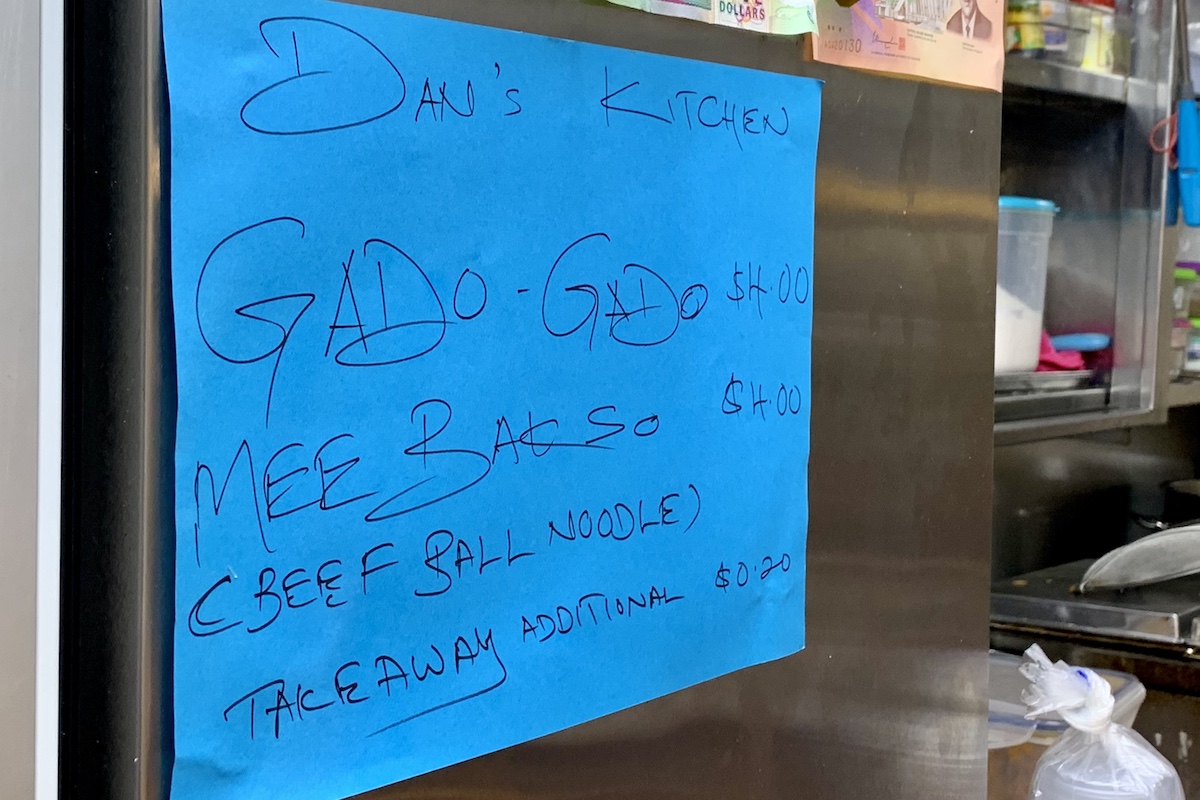 DOLLARS
DAN'S KITCHEN
GADO-GADO $4.00
MEE BAKSO $4.00
(BEEF BALL NOODLE)
TAKEAWAY ADDITIONAL $0.20